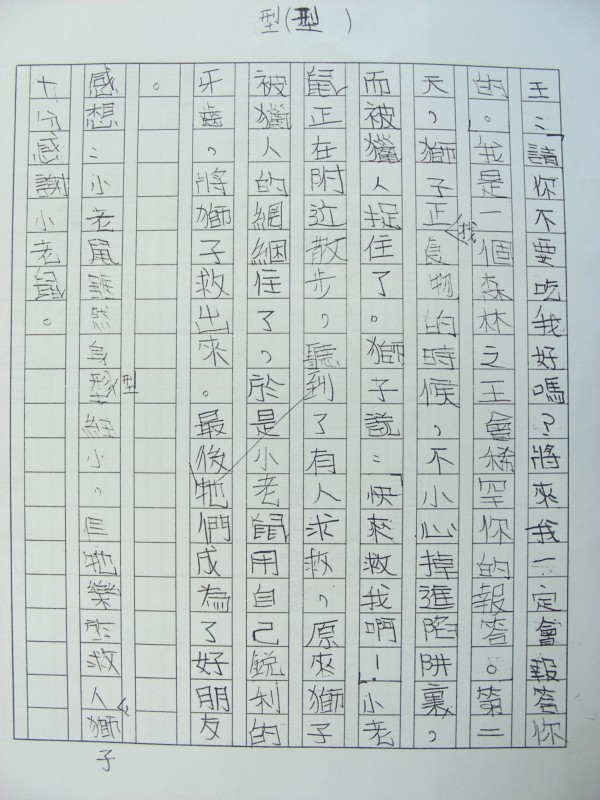 型(型)
王：「請你不要吃我好嗎？將來我一定會報答你
的。」我是一個森林之王會稀罕你的報答。第二
天，獅子正找食物的時候，不小心掉進陷阱裏，
而被獵人捉住了。獅子說：「快來救我啊！」小老
鼠正在附近散步，聽到了有人求救，原來獅子
被獵人的網綑住了，於是小老鼠用自己銳利的
牙齒，將獅子救出來。最後牠們成為了好朋友
。
感想：小老鼠雖然身型細小，但牠樂於救人，獅子
十分感謝小老鼠。